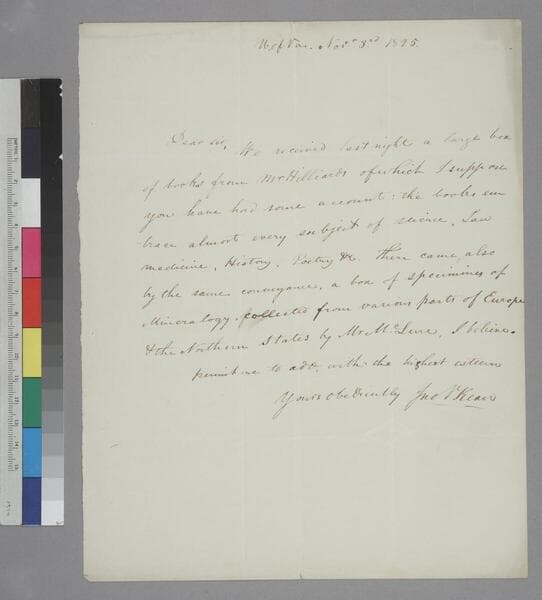 U of Va. Nov. 3rd 1825.
Dear sir, We received last night a large box
of books from Mr Hilliards of which I suppose
you have had some account: the books em
brace almost every subject of science, Law
medicine, History, Poetry &c. there came, also
by the same conveyance, a box of specimines of
Mineralogy. collected from various parts of Europe
& the Northern States by Mr McLure, I believe.
permit me to add, with the highest esteem
Yours obediently Jno V Kean